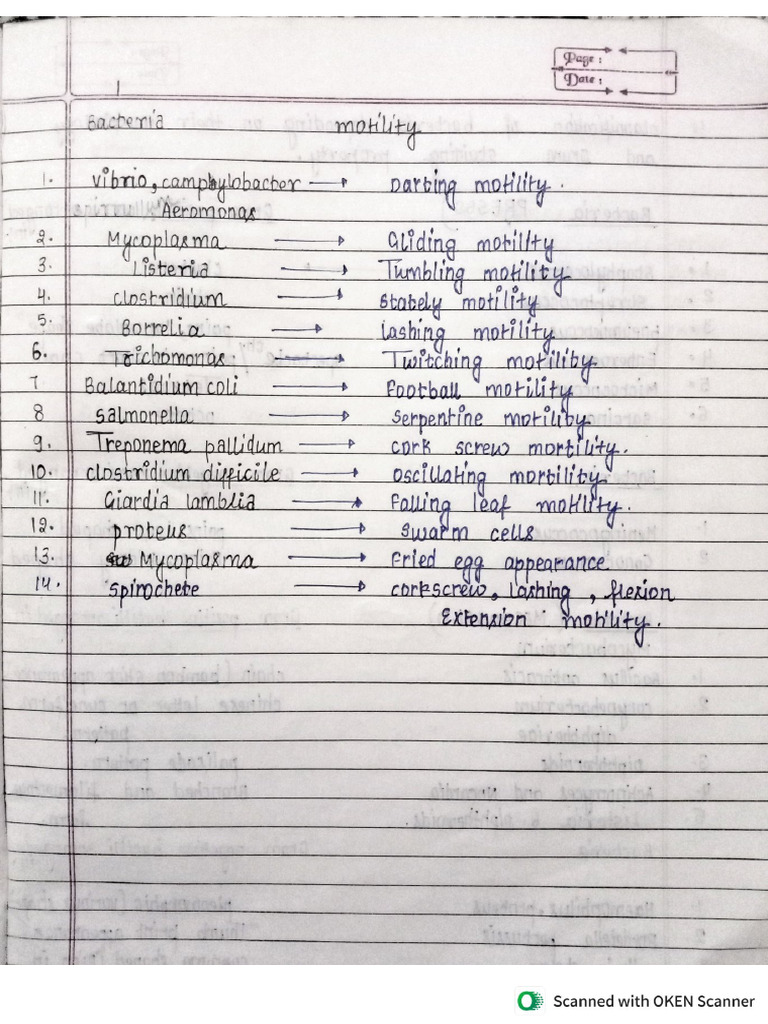 Page :
Date :
Bacteria motility
1. Vibrio, camphylobacter → Darting motility.
Aeromonas
2. Mycoplasma → Gliding motility
3. Listeria → Tumbling motility
4. clostridium → stately motility
5. Borrelia → lashing motility
6. Trichomonas → Twitching motility
7 Balantidium coli → Football motility
8 salmonella → serpentine motility
9. Treponema pallidum → cork screw mortility.
10. clostridium difficile → oscillating mortility
11. Giardia lamblia → Falling leaf motility.
12. proteus → swarm cells
13. Mycoplasma → Fried egg appearance
14. spirochete → corkscrew, Lashing, flexion
Extension motility.
Scanned with OKEN Scanner